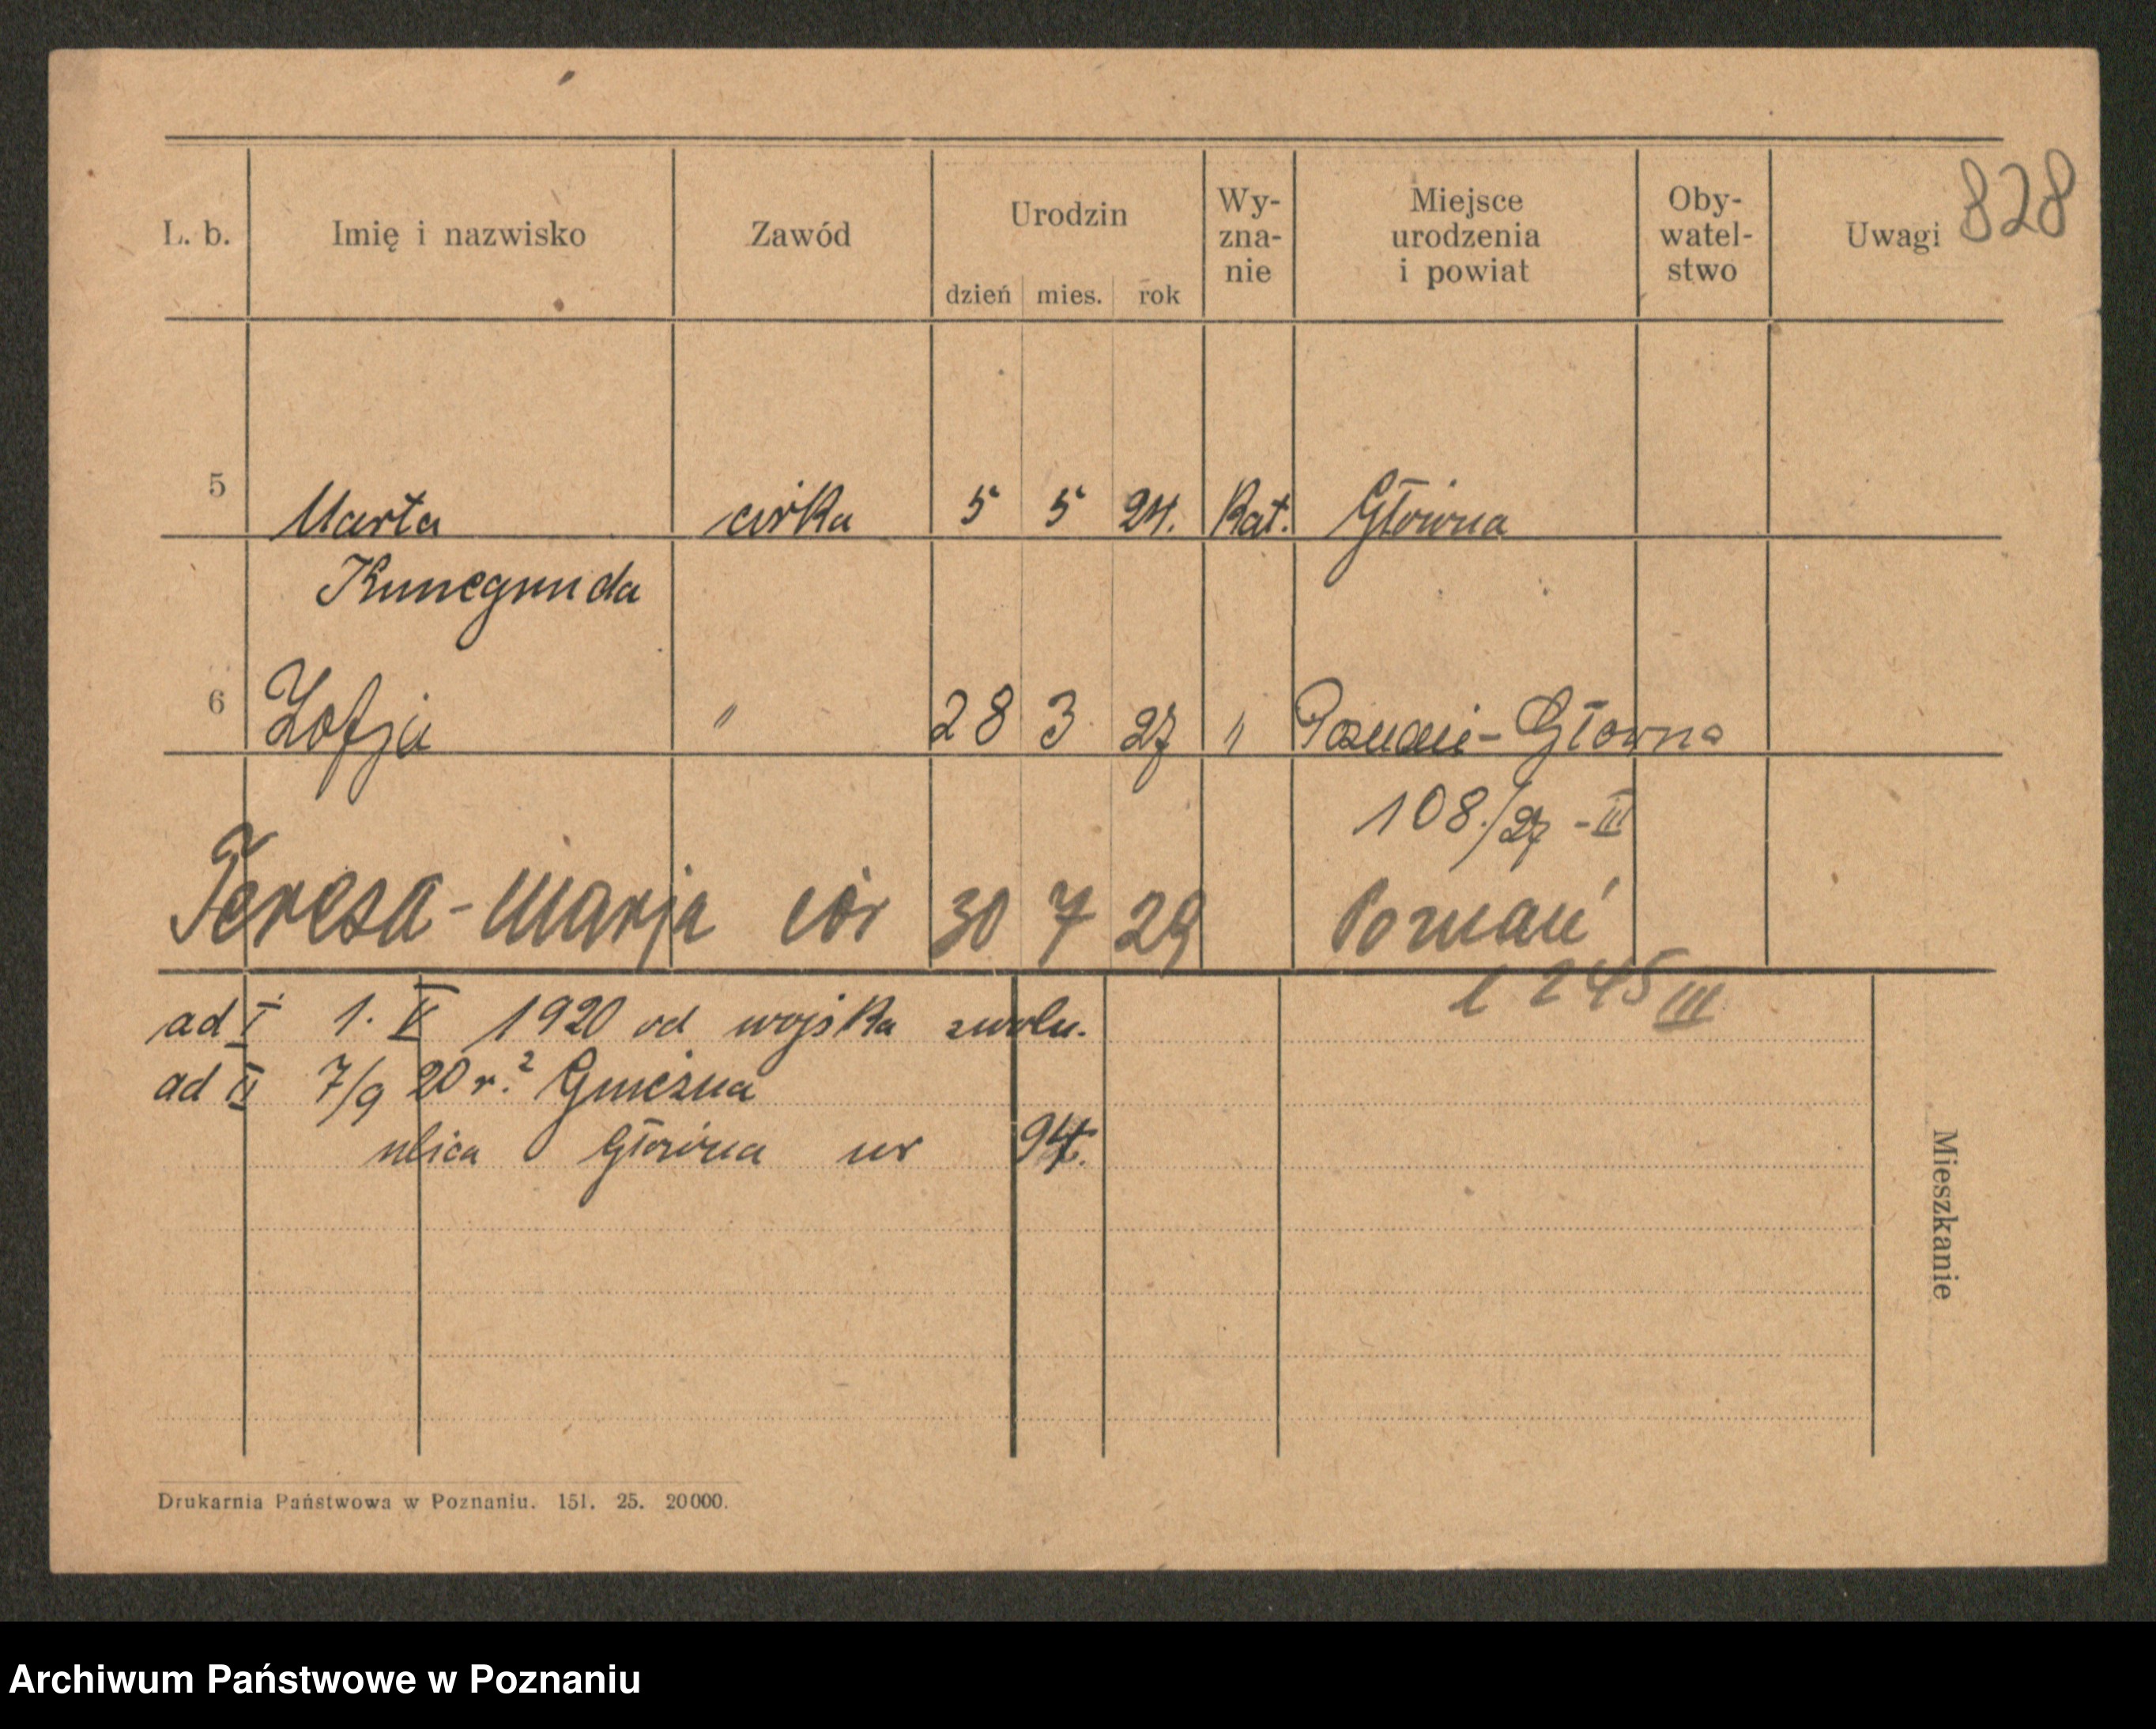 828
L. b. Imię i nazwisko Zawód Urodzin dzień mies. rok Wy-zna-nie Miejsce urodzenia i powiat Oby-watel-stwo Uwagi
5 Marta córka 5 5 24. Kat. Główna
Kunegunda
6 Zofja " 28 3 27 " Poznań-Główna
108./27 -III
Teresa-Marja cór 30 7 29 Poznań
1245 III
ad I 1. V 1920 od wojska zwoln.
ad II 7/9 20 r. z Gniezna
ulica Główna nr 94.
Mieszkanie
Drukarnia Państwowa w Poznaniu. 151. 25. 20000.
Archiwum Państwowe w Poznaniu